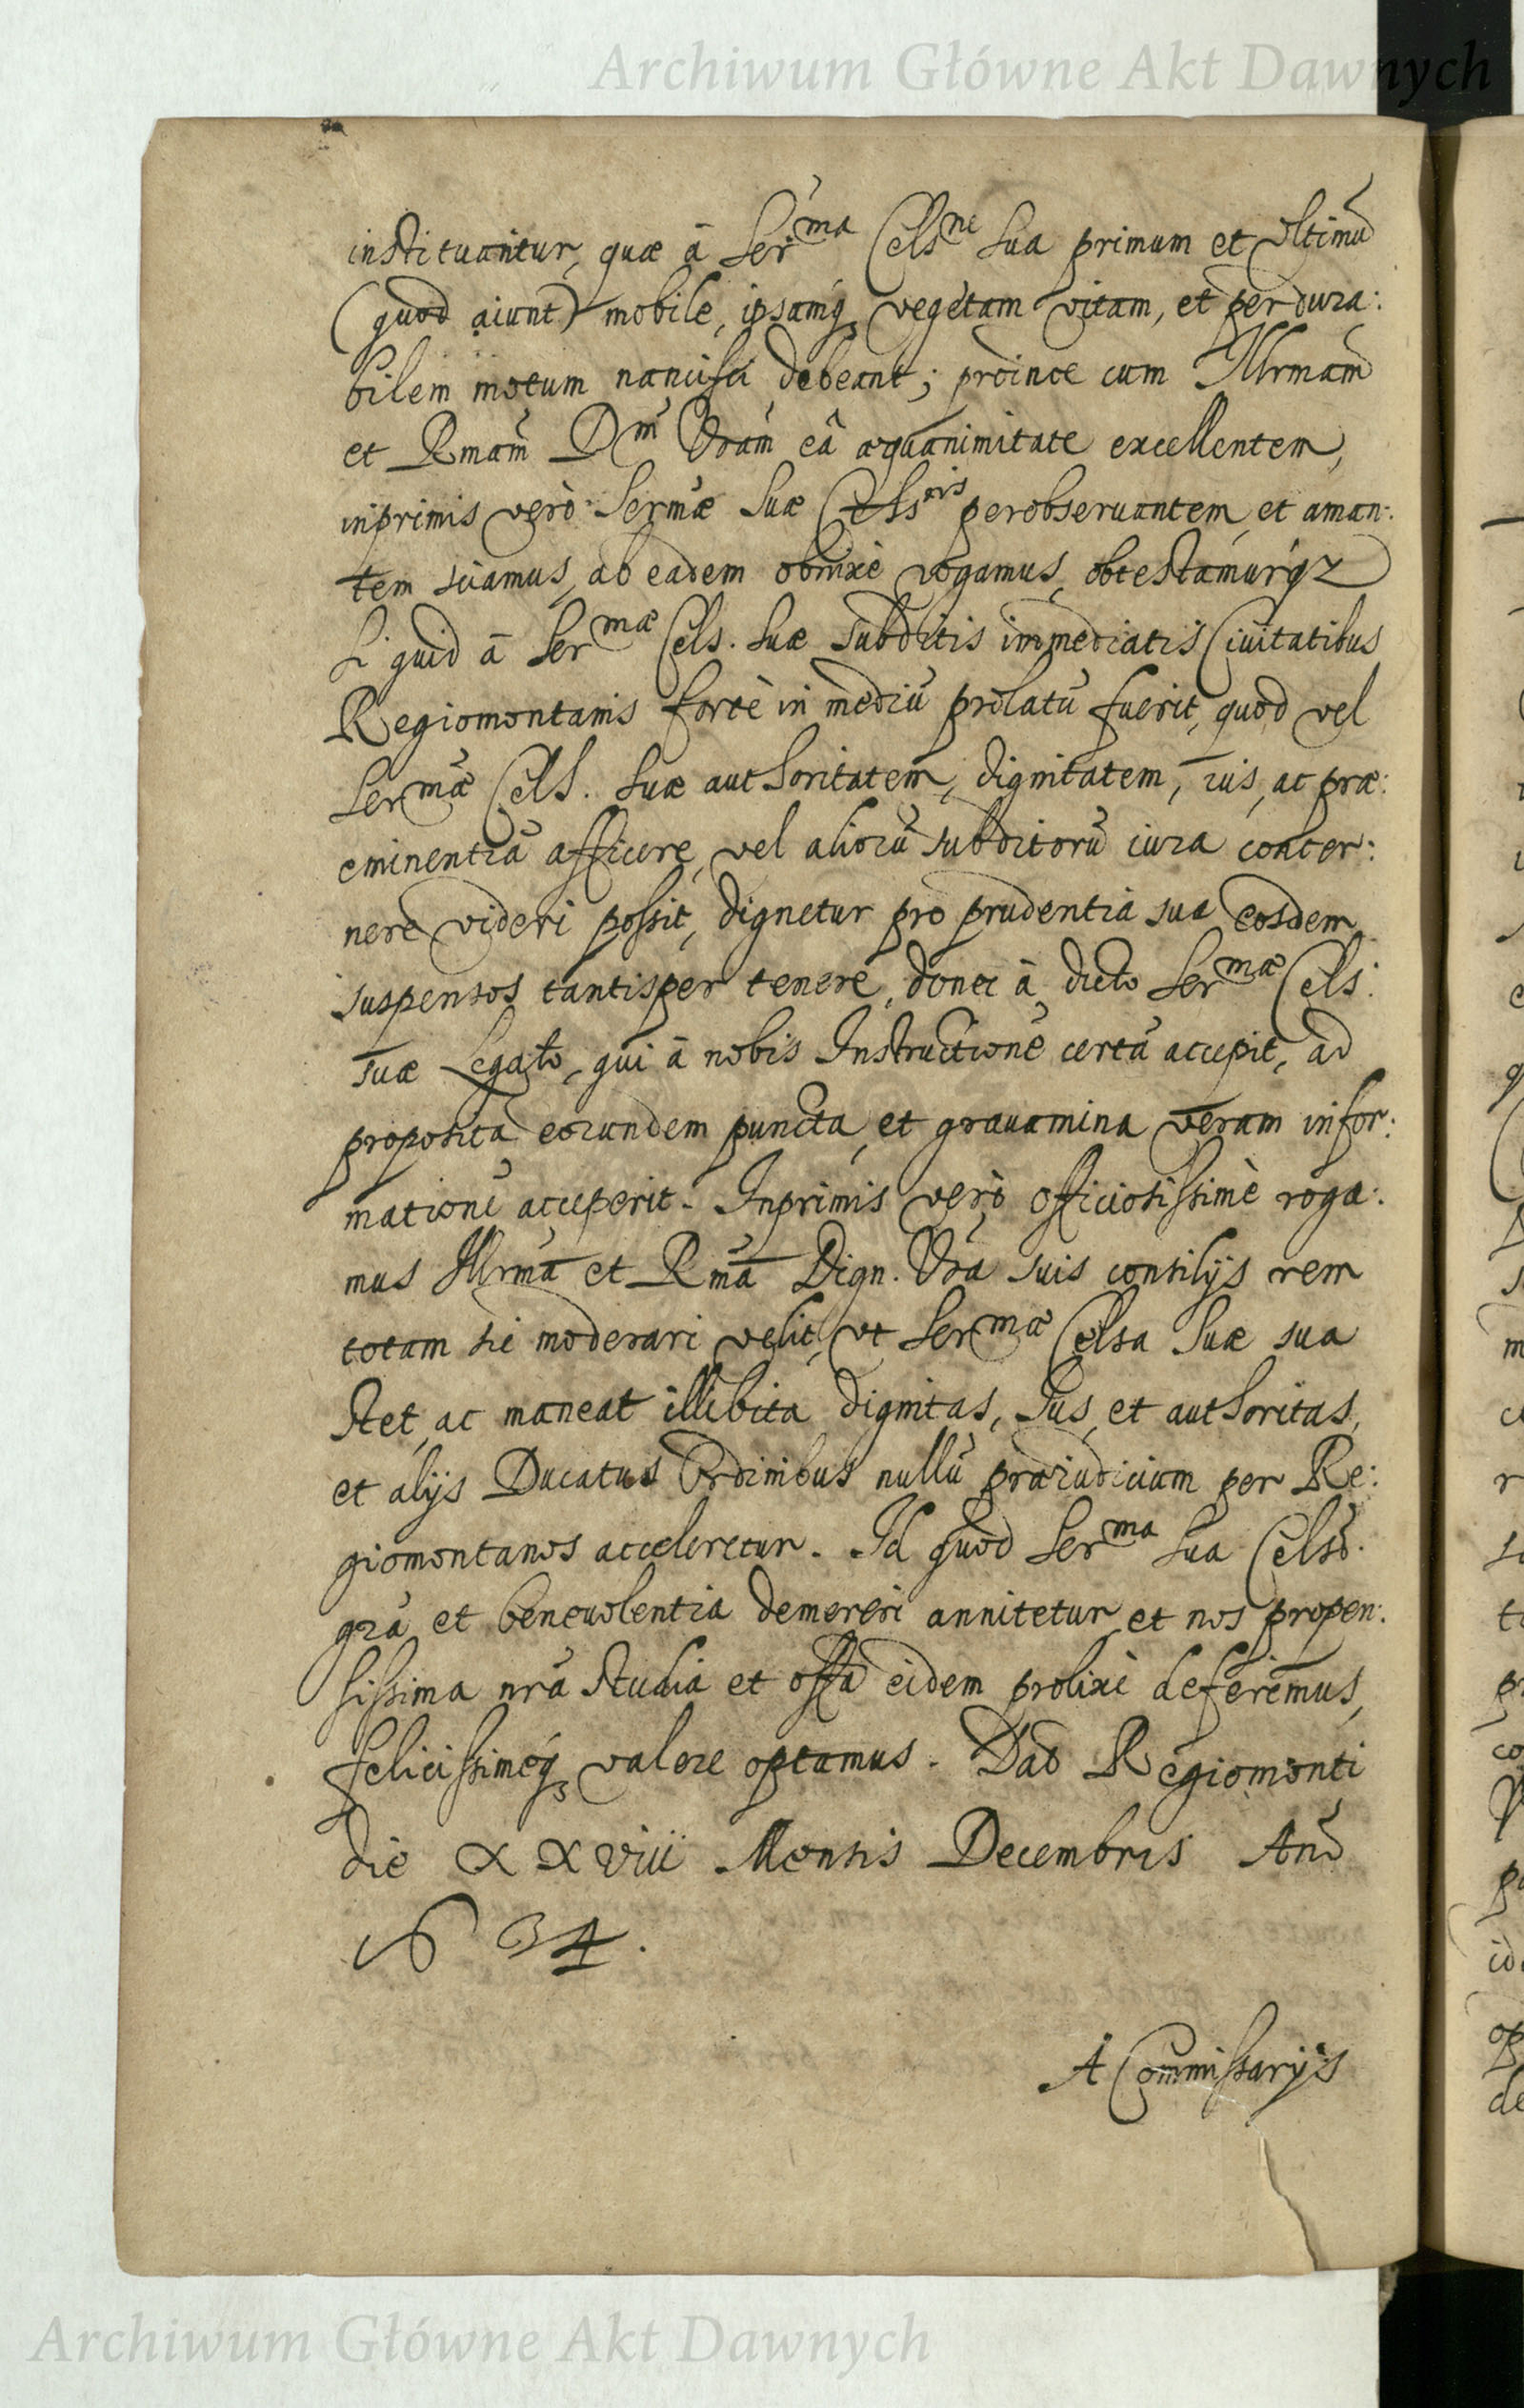 Archiwum Główne Akt Dawnych
instituantur, quæ â Ser^ma Cels^ne Sua primum et vltimũ
(quod aiunt) mobile, ipsamq₃ vegetam vitam, et perdura:
bilem motum nancisci debeant; proinde cum Illrmam
et Rmam̃ D^m̃ Vram̃ eâ æquanimitate excellentem,
inprimis verò Sermæ̃ Suæ Cels^nis perobseruantem, et aman:
tem sciamus, ab eadem obnixè rogamus, obtestamurq₃
Si quid â Ser^mæ Cels. Suæ subditis immediatis Ciuitatibus
Regiomontanis fortè in mediũ prolatũ fuerit, quod vel
Sermæ̃ Cels. Suæ authoritatem, dignitatem, ius, ac præ:
eminentiã afficere, vel aliorũ subditorũ iura conter:
nere videri possit, dignetur pro prudentia sua eosdem
suspensos tantisper tenere, donec â dicto Ser^mæ Cels:
suæ Legato, qui â nobis Instructionẽ certã accepit, ad
proposita eorundem puncta, et grauamina veram infor:
mationẽ acceperit. Inprimis verò officiosissimè roga:
mus Illrmã et Rmã Dign. Vrã suis consilijs rem
totam sic moderari velit, vt Ser^mæ Celsa Suæ sua
stet, ac maneat illibita dignitas, Ius, et authoritas,
et alijs Ducatus Ordinibus nullũ præiudicium per Re:
giomontanos acceleretur. Id quod Ser^ma Sua Celsd̃.
grã et beneuolentia demereri annitetur, et nos propen:
sissima nrã studia et offa eidem prolixè deferemus,
felicissimeq₃ valere optamus. Dab Regiomonti
die XXviii Mensis Decembris Anõ
1634.
A Commissarijs
Archiwum Główne Akt Dawnych